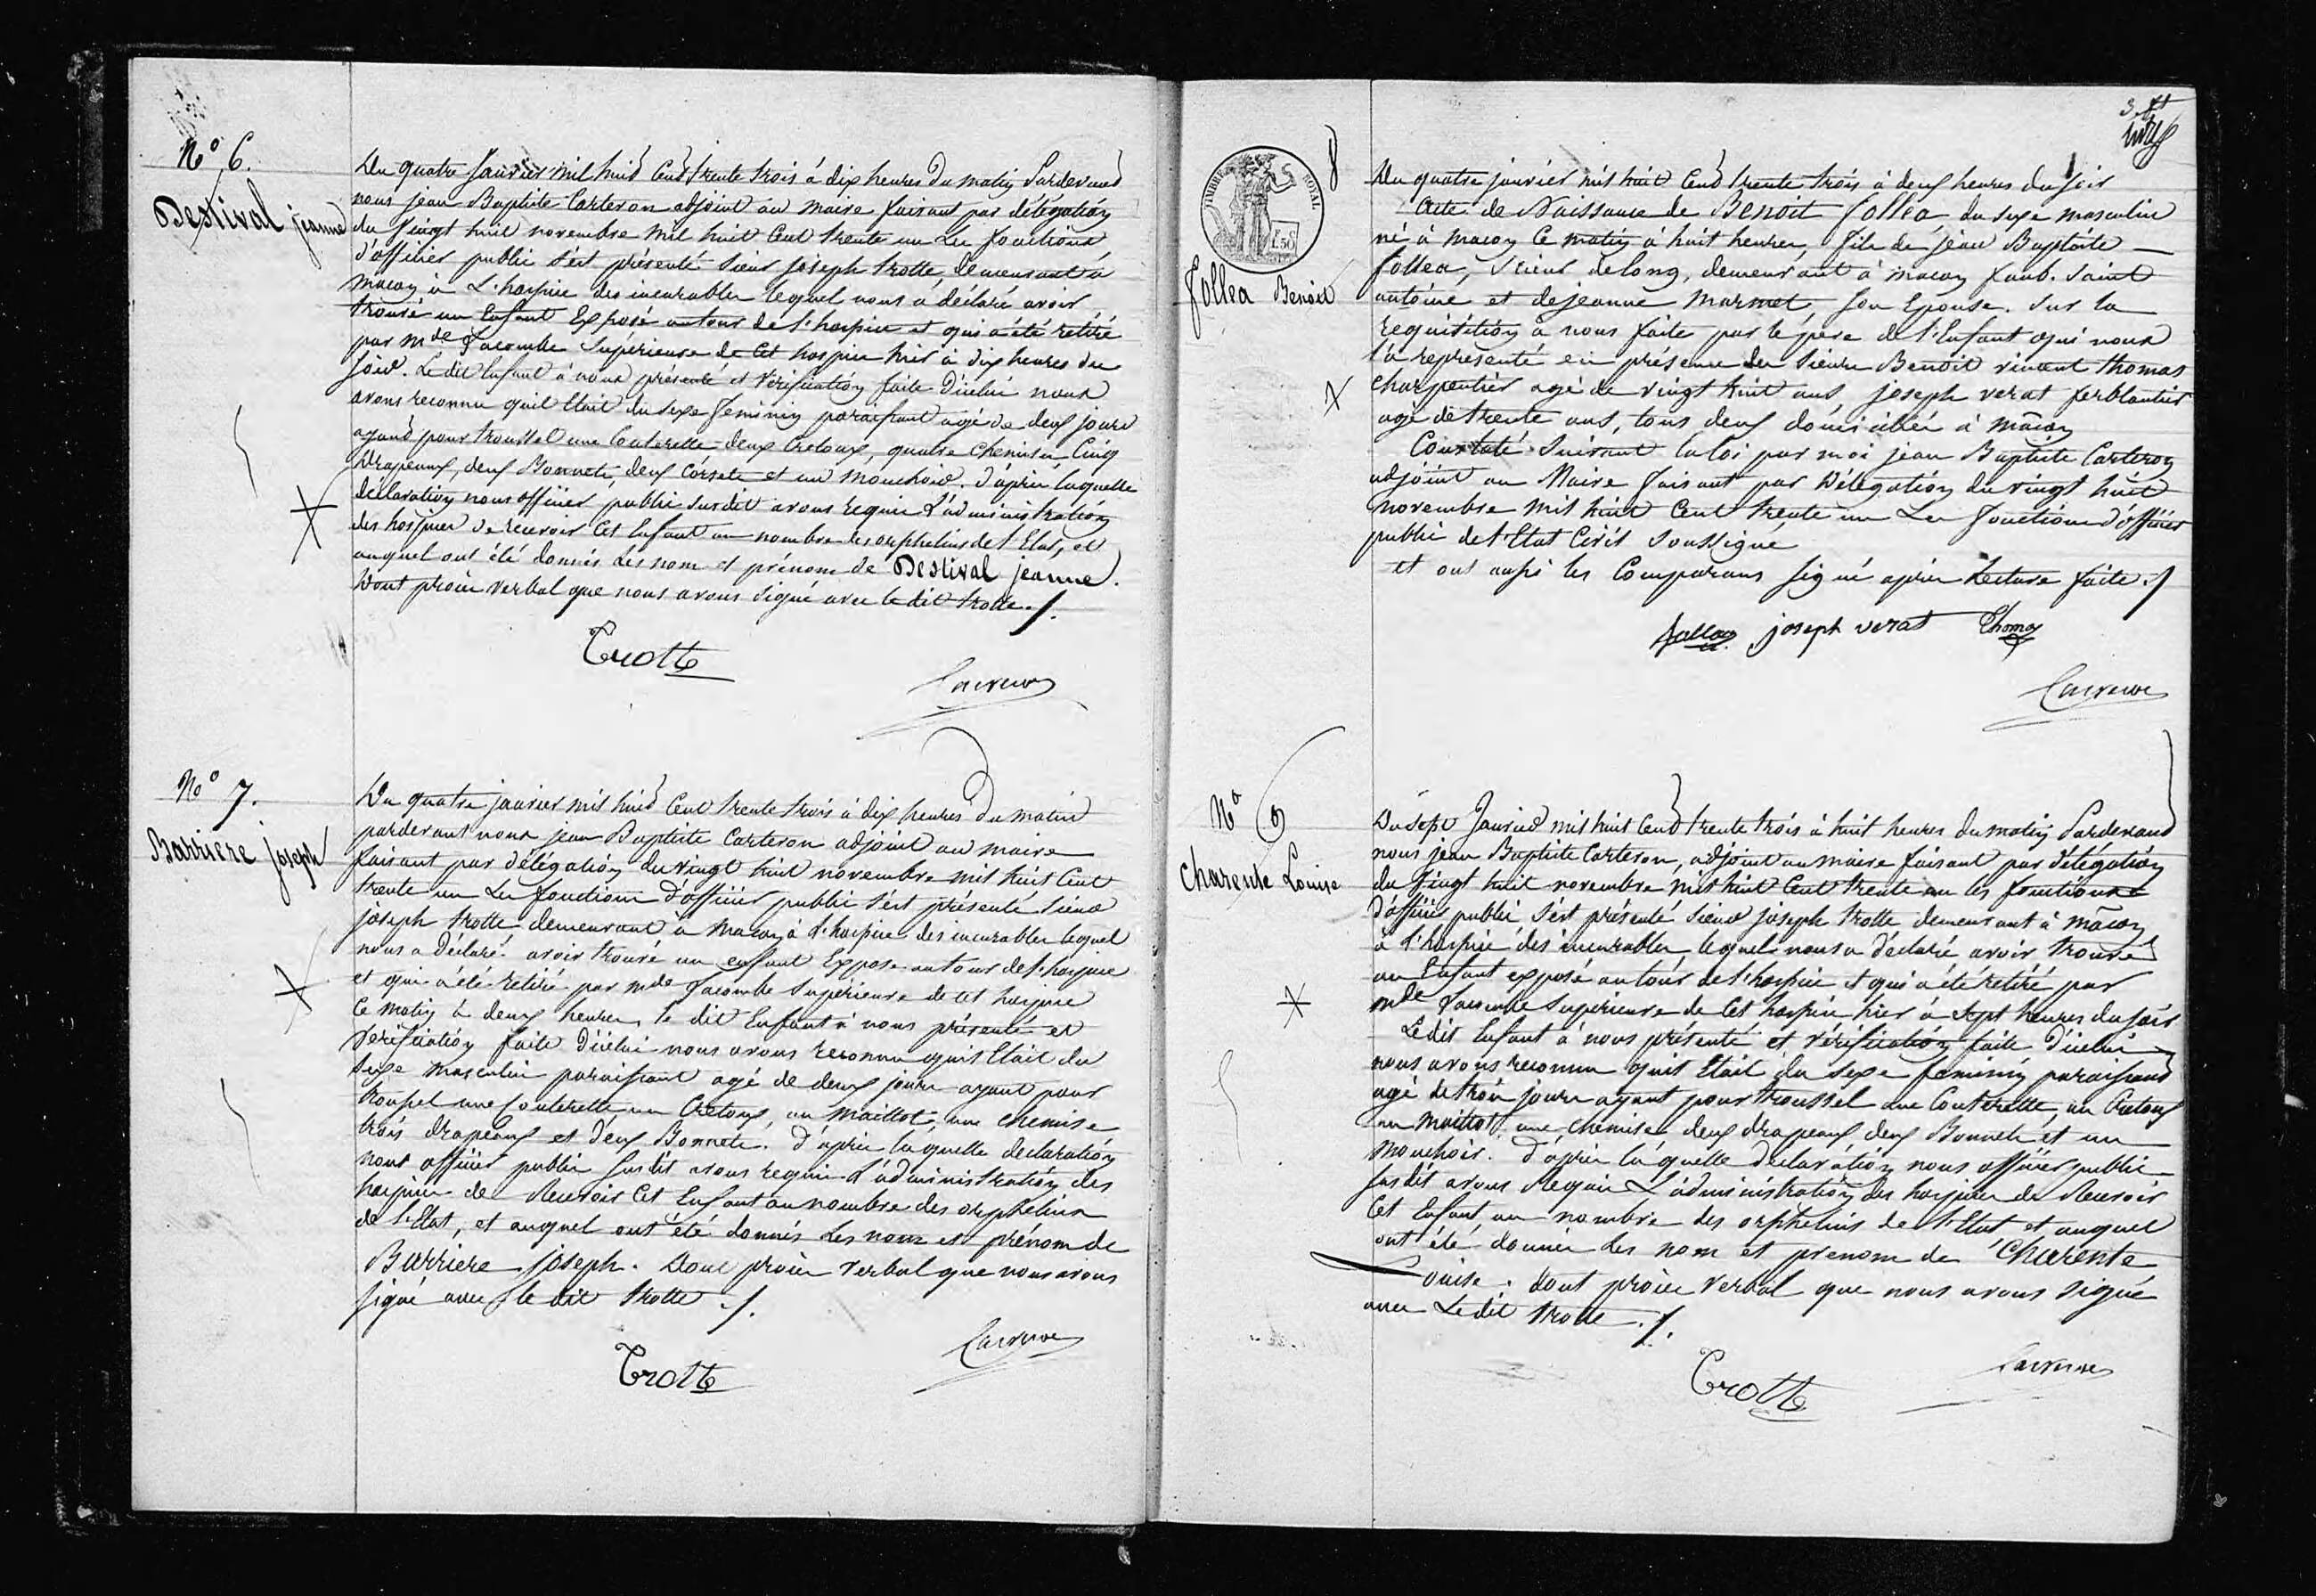 N° 6.
Destival jeanne
Du quatre Janvier mil huit Cent trente trois à dix heures du matin Pardevant
nous jean Baptiste Carteron adjoint au maire faisant par délégation
du Vingt huit novembre mil huit Cent trente un Les fonctions
d'officier public s'est présenté Sieur joseph trotte, demeurant à
macon à L'hospice des incurables lequel nous à déclaré avoir
trouvé un Enfant Exposé au tour de l'hospice et qui a été retiré
par mde Lacombe Supérieure de Cet hospice hier à dix heures du
soir. Le dit Enfant à nous présenté et vérification faite d'icelui nous
avons reconnu qu'il Etait du sexe feminin paraissant agé de deux jours
ayant pour troussel une Couterette deux Cretons, quatre chemises Cinq
Drapeaux, deux Bonnets, deux Corsets et un mouchoir. d'après laquelle
déclaration nous officier public susdit avons requis L'administration
des hospices de recevoir Cet Enfant au nombre des orphelins de l'Etat, et
auquel ont été donnés Les nom et prénom de Destival jeanne.
Dont procès verbal que nous avons signé avec le dit trotte./.
Trotte
N° 7.
Barriere joseph
Du quatre janvier mil huit Cent trente trois à dix heures du matin
pardevant nous jean Baptiste Carteron adjoint au maire
faisant par délégation du vingt huit novembre mil huit Cent
trente un Les fonctions d'officier public s'est présenté Sieur
joseph trotte demeurant à macon à L'hospice des incurables lequel
nous a déclaré avoir trouvé un enfant Exposé au tour de l'hospice
et qui a été retiré par mde Lacombe Supérieure de cet hospice
Ce matin à deux heures, le dit Enfant à nous présenté et
vérification faite d'icelui nous avons reconnu qu'il Etait du
sexe masculin paraissant agé de deux jours ayant pour
troussel une Couterette, un Cretons, un maillot, une chemise
trois drapeaux et deux Bonnets. d'après laquelle déclaration
nous officier public susdit avons requis L'administration des
hospices de Recevoir Cet Enfant au nombre des orphelins
de l'Etat, et auquel ont été donnés Les nom et prénom de
Barriere joseph. Dont procès verbal que nous avons
signé avec le dit trotte ./.
Trotte
TIMBRE ROYAL
8
follea Benoit
Du quatre janvier mil huit Cent trente trois à deux heures du soir
Acte de Naissance de Benoit follea, du sexe masculin
né à macon Ce matin à huit heures, fils de jean Baptiste
follea, Scieur de long, demeurant à macon faub. saint
antoine et de jeanne Marmet, son Epouse. Sur la
requisition à nous faite par le pere de l'Enfant qui nous
l'à representé en présence des sieurs Benoit vincent thomas
charpentier agé de vingt huit ans, joseph verat ferblantier
agé de trente ans, tous deux domiciliés à mâcon
Constaté Suivant la loi par moi jean Baptiste Carteron
adjoint au Maire faisant par Délégation du vingt huit
novembre mil huit Cent trente un Les fonctions d'officier
public de l'Etat Civil soussigné
et ont aussi les Comparans signé après Lecture faite ./
joseph verat Thomas
N° 9
Charente Louise
Du sept Janvier mil huit Cent trente trois à huit heures du matin Pardevant
nous jean Baptiste Carteron, adjoint au maire faisant par délégation
du Vingt huit novembre mil huit Cent trente un les fonctions
d'officier public s'est présenté Sieur joseph trotte demeurant à mâcon
à l'hospice des incurables, lequel nous a déclaré avoir trouvé
un Enfant exposé au tour de l'hospice et qui a été retiré par
mde Lacombe Supérieure de Cet hospice hier à Sept heures du soir
Ledit Enfant à nous présenté et vérification faite d'icelui
nous avons reconnu qu'il Etait du sexe feminin paraissant
agé de trois jours ayant pour troussel une Couterette, un Cretons
un Maillot, une chemise deux drapeaux, deux Bonnets et un
mouchoir. d'après laquelle déclaration nous officier public
susdit avons Requis L'administration des hospices de Recevoir
Cet Enfant, au nombre des orphelins de l'Etat et auquel
ont été donnés Les nom et prenom de Charente
Louise. dont procès verbal que nous avons signé
avec Le dit trotte ./.
Trotte